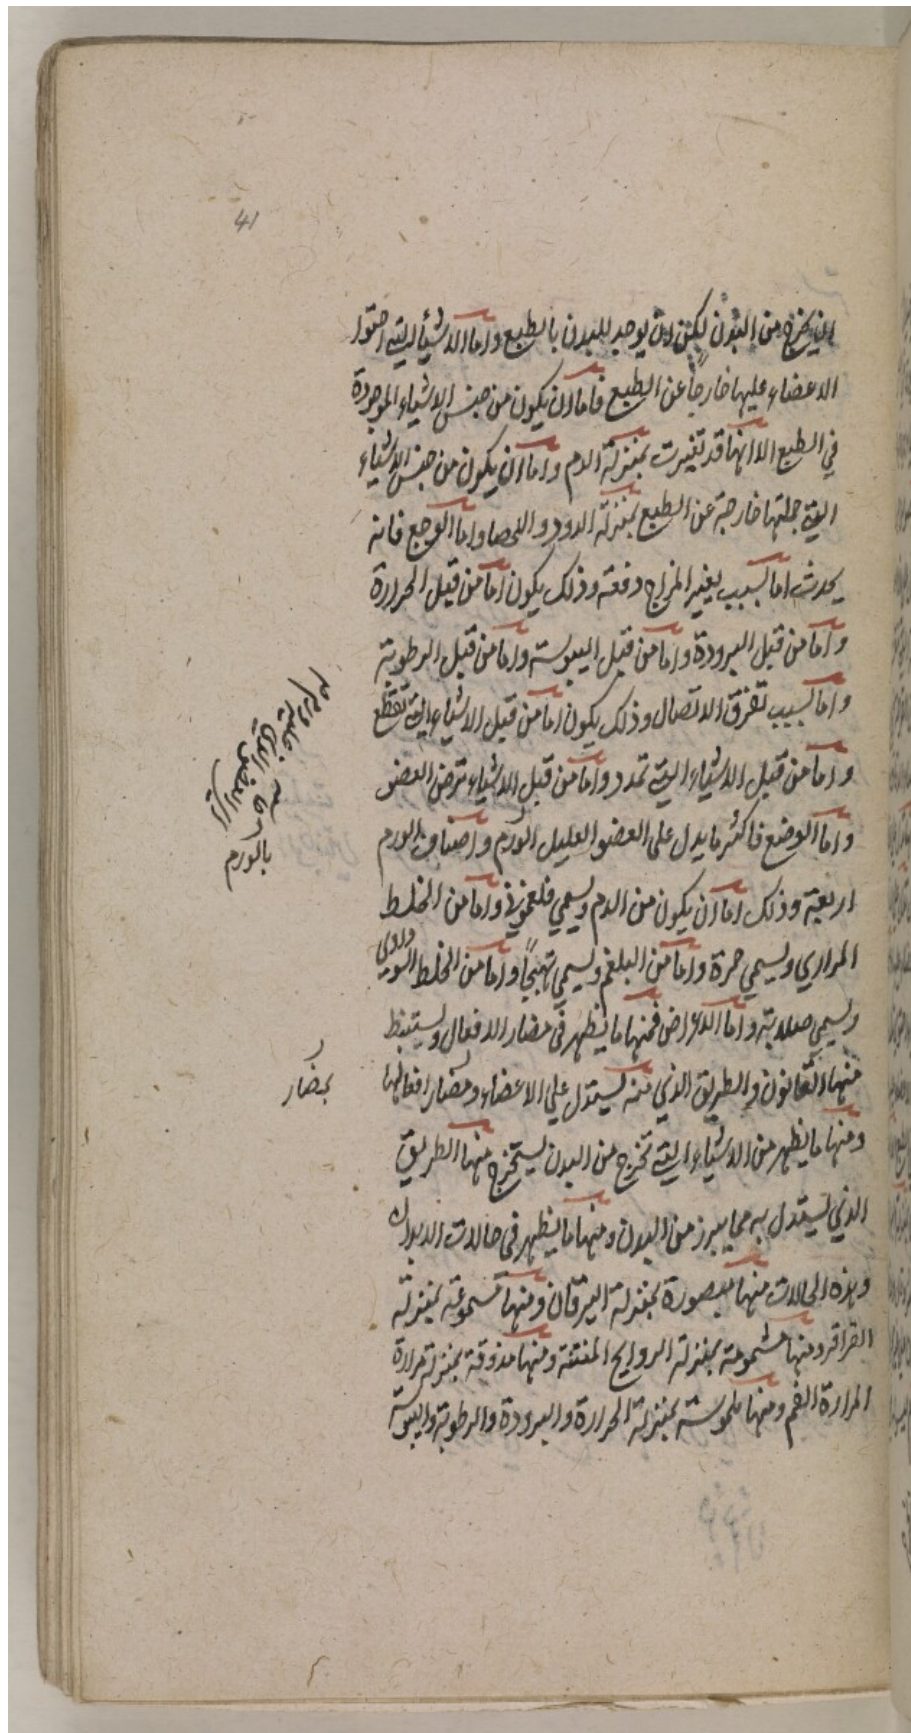 41
ان يخرج من البدن لكن لان يوجد للبدن بالطبع واما الاشياء التي احتوا
الاعضاء عليها خارجا عن الطبع فاما ان يكون من جنس الاشياء الموجودة
في الطبع الا انها قد تغيرت بمنزلة الدم واما ان يكون من جنس الاشياء
التي جملتها خارجة عن الطبع بمنزلة الدود والحصا واما الوجع فانه
يحدث اما بسبب يغير المزاج دفعة وذلك يكون اما من قبل الحرارة
واما من قبل البرودة واما من قبل اليبوسة واما من قبل الرطوبة
واما بسبب تفرق الاتصال وذلك يكون اما من قبل الاشياء التي تقطع
واما من قبل الاشياء التي تمدد واما من قبل الاشياء ترض العضو
واما الوضع فاكثر ما يدل على العضو العليل الورم واصناف الورم
اربعة وذلك اما ان يكون من الدم ويسمي فلغموني واما من الخلط
المراري ويسمي حمرة واما من البلغم ويسمي تهيجاً واما من الخلط السوداوي
ويسمي صلابة واما الاعراض فمنها ما يظهر في مضار الافعال ويستنبط
منها القانون والطريق الذي منه يستدل علي الاعضاء ومضار افعالها
بمضار
ومنها ما يظهر من الاشياء التي تخرج من البدن يستخرج منها الطريق
الذي يستدل به مما يبرز من البدن ومنها ما يظهر في حالات الابدان
وهذه الحالات منها مبصورة بمنزلة اليرقان ومنها مسموعة بمنزلة
القراقر ومنها مشمومة بمنزلة الروايح المنتنة ومنها مذوقة بمنزلة مرارة
المرارة الفم ومنها ملموسة بمنزلة الحرارة والبرودة والرطوبة واليبوسة
بالورم